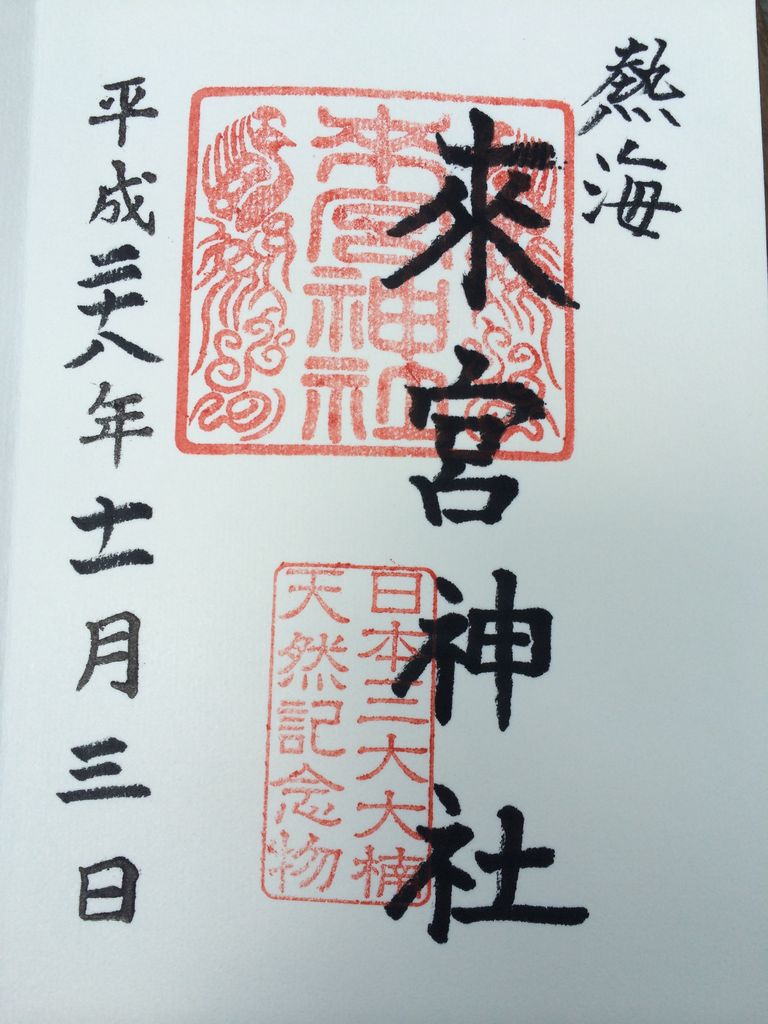 熱海
來宮神社
來宮神社
日本三大大楠
天然記念物
平成二十八年十一月三日